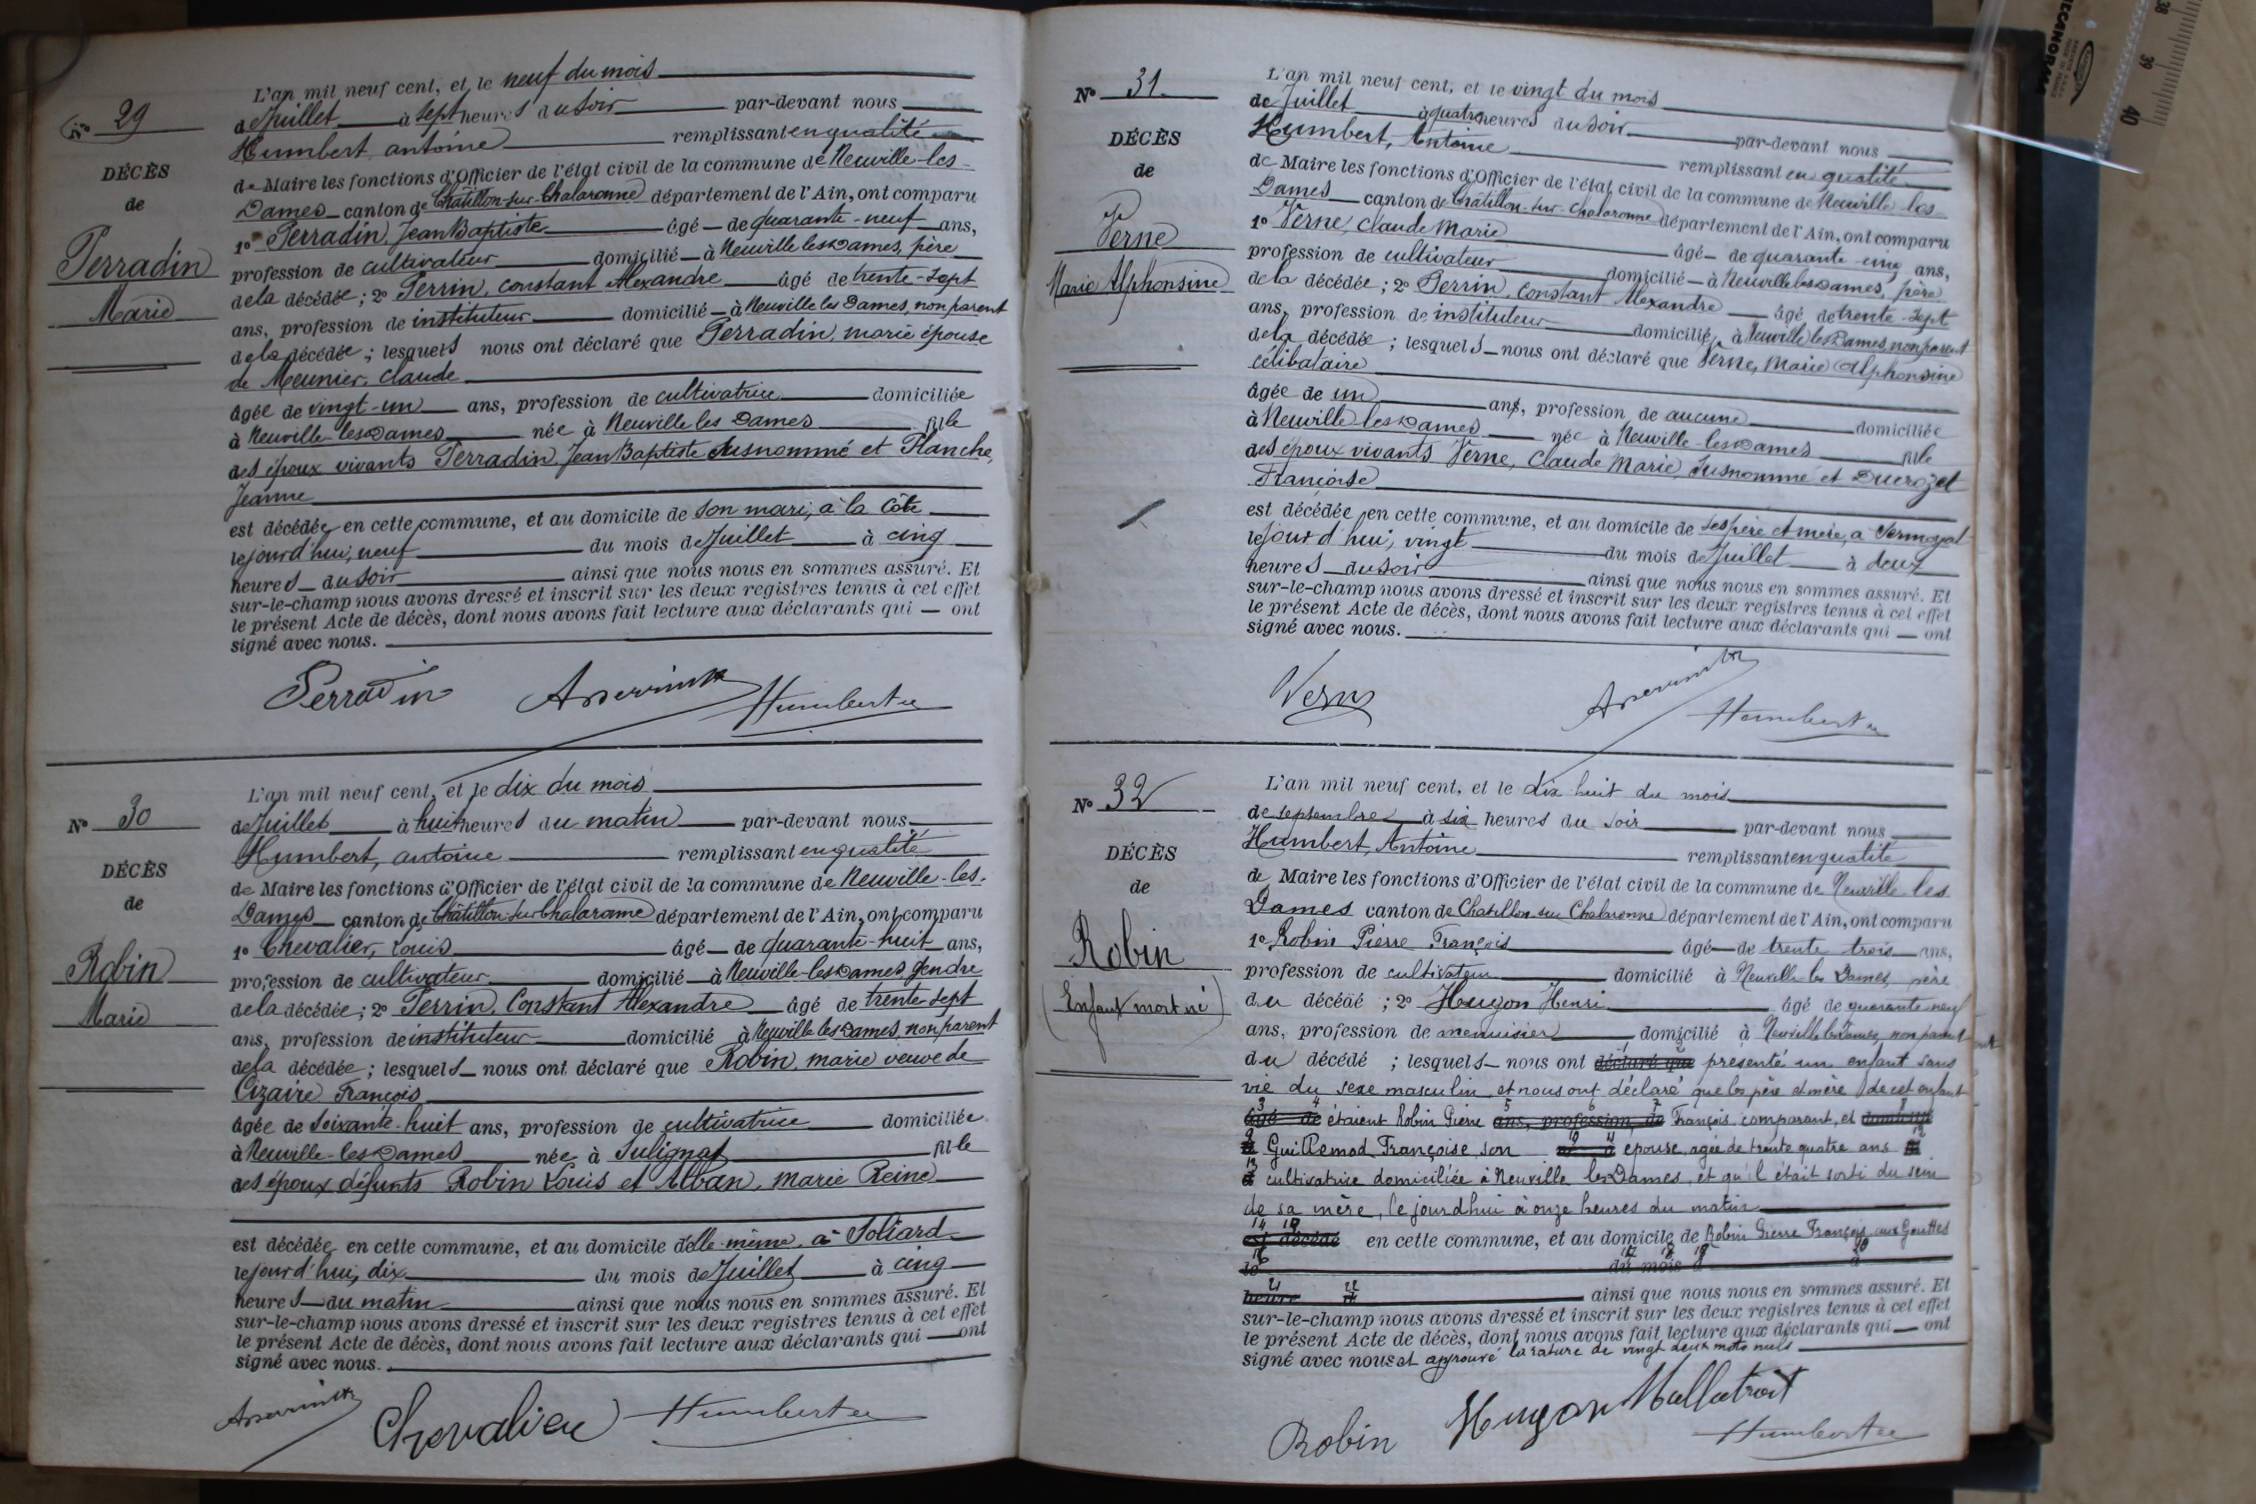 N° 29
DÉCÈS
de
Perradin
Marie
L'an mil neuf cent, et le neuf du mois
de Juillet à sept heures du soir par-devant nous
Humbert, antoine remplissant en qualité
de Maire les fonctions d'Officier de l'état civil de la commune de Neuville-les-
Dames canton de Châtillon-sur-Chalaronne département de l'Ain, ont comparu
1° Perradin, Jean Baptiste âgé de quarante-neuf ans,
profession de cultivateur domicilié à Neuville les Dames, père
de la décédée ; 2° Perrin, Constant Alexandre âgé de trente-sept
ans, profession de instituteur domicilié à Neuville les Dames, non parent
de la décédée ; lesquels nous ont déclaré que Perradin, marie épouse
de Meunier, Claude
âgée de vingt-un ans, profession de cultivatrice domiciliée
à Neuville-les-Dames née à Neuville les Dames fille
des époux vivants Perradin, Jean Baptiste susnommé et Planche,
Jeanne
est décédée en cette commune, et au domicile de son mari, à la Côte
le jourd'hui, neuf du mois de Juillet à cinq
heures du soir ainsi que nous nous en sommes assuré. Et
sur-le-champ nous avons dressé et inscrit sur les deux registres tenus à cet effet
le présent Acte de décès, dont nous avons fait lecture aux déclarants qui ont
signé avec nous.
Perradin Humbert
N° 30
DÉCÈS
de
Robin
Marie
L'an mil neuf cent, et le dix du mois
de Juillet à huit heures du matin par-devant nous
Humbert, antoine remplissant en qualité
de Maire les fonctions d'Officier de l'état civil de la commune de Neuville-les-
Dames canton de Châtillon-sur-Chalaronne département de l'Ain, ont comparu
1° Chevalier, Louis âgé de quarante-huit ans,
profession de cultivateur domicilié à Neuville-les-Dames, gendre
de la décédée ; 2° Perrin, Constant Alexandre âgé de trente-sept
ans, profession de instituteur domicilié à Neuville les Dames, non parent
de la décédée ; lesquels nous ont déclaré que Robin, marie veuve de
Cizaire François
âgée de soixante-huit ans, profession de cultivatrice domiciliée
à Neuville-les-Dames née à Sulignat fille
des époux défunts Robin Louis et Alban, marie Reine
est décédée en cette commune, et au domicile d'elle-même, à Soliard
le jourd'hui, dix du mois de Juillet à cinq
heures du matin ainsi que nous nous en sommes assuré. Et
sur-le-champ nous avons dressé et inscrit sur les deux registres tenus à cet effet
le présent Acte de décès, dont nous avons fait lecture aux déclarants qui ont
signé avec nous.
Chevalier Humbert
N° 31
DÉCÈS
de
Verne
Marie Alphonsine
L'an mil neuf cent, et le vingt du mois
de Juillet à quatre heures du soir par-devant nous
Humbert, Antoine remplissant en qualité
de Maire les fonctions d'Officier de l'état civil de la commune de Neuville-les-
Dames canton de Châtillon-sur-Chalaronne département de l'Ain, ont comparu
1° Verne, Claude Marie âgé de quarante-cinq ans,
profession de cultivateur domicilié à Neuville les Dames, père
de la décédée ; 2° Perrin, Constant Alexandre âgé de trente-sept
ans, profession de instituteur domicilié à Neuville les Dames, non parent
de la décédée ; lesquels nous ont déclaré que Verne, Marie Alphonsine
célibataire
âgée de un ans, profession de aucune domiciliée
à Neuville-les-Dames née à Neuville-les-Dames fille
des époux vivants Verne, Claude Marie, susnommé et Ducrozet
Françoise
est décédée en cette commune, et au domicile de ses père et mère, à
le jourd'hui, vingt du mois de Juillet à deux
heures du soir ainsi que nous nous en sommes assuré. Et
sur-le-champ nous avons dressé et inscrit sur les deux registres tenus à cet effet
le présent Acte de décès, dont nous avons fait lecture aux déclarants qui ont
signé avec nous.
Verne Humbert
N° 32
DÉCÈS
de
Robin
(Enfant mort né)
L'an mil neuf cent, et le dix huit du mois
de septembre à six heures du soir par-devant nous
Humbert, Antoine remplissant en qualité
de Maire les fonctions d'Officier de l'état civil de la commune de Neuville-les
Dames canton de Chatillon sur Chalaronne département de l'Ain, ont comparu
1° Robin Pierre François âgé de trente trois ans,
profession de cultivateur domicilié à Neuville les Dames, père
du décédé ; 2° Hugon Henri âgé de quarante neuf
ans, profession de menuisier domicilié à Neuville les Dames, non parent
du décédé ; lesquels nous ont déclaré que présenté un enfant sans
vie du sexe masculin, et nous ont déclaré que les père et mère de cet enfant
âgé de étaient Robin Pierre ans, profession de François, comparant, et domicilié
à Guillemod Françoise son né à épouse, agée de trente quatre ans
cultivatrice domiciliée à Neuville les Dames, et qu'il était sorti du sein
de sa mère, le jourd'hui à onze heures du matin
est décédé en cette commune, et au domicile de Robin Pierre François aux Gouttes
le du mois d à
heure ainsi que nous nous en sommes assuré. Et
sur-le-champ nous avons dressé et inscrit sur les deux registres tenus à cet effet
le présent Acte de décès, dont nous avons fait lecture aux déclarants qui ont
signé avec nous et approuvé la rature de vingt deux mots nuls
Robin Hugon Humbert
38
39
40